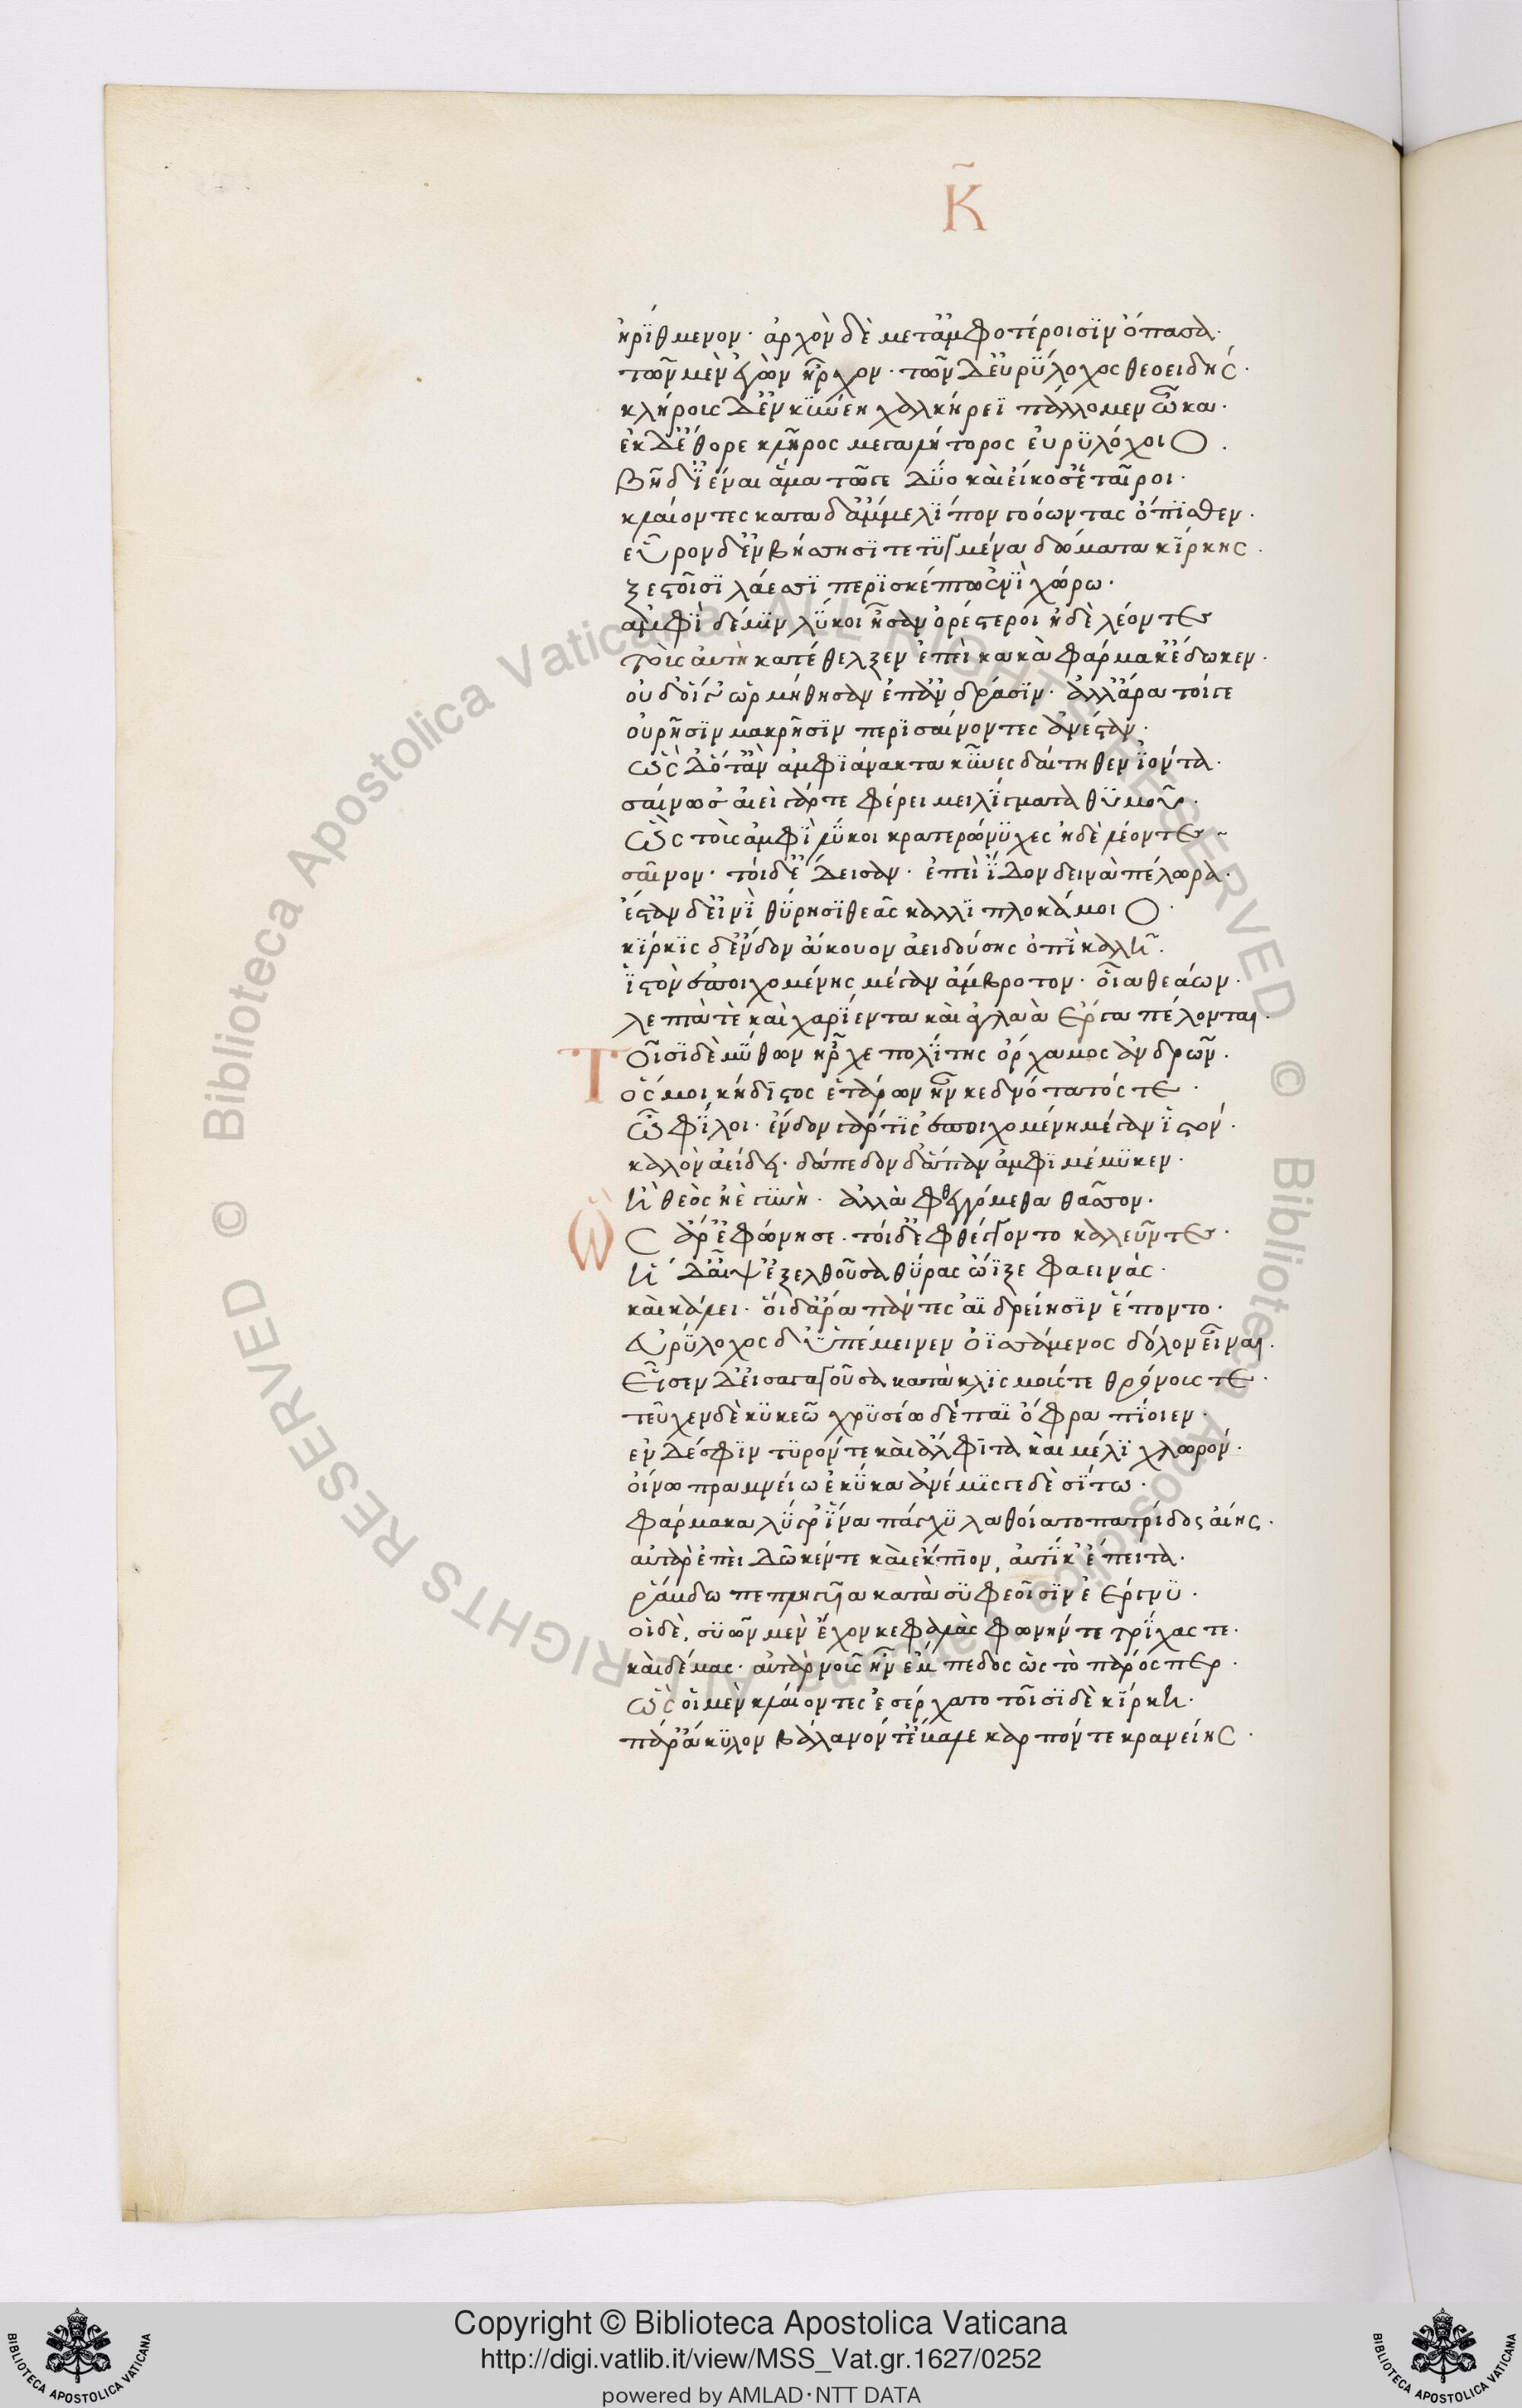 Κ̃
ἠρίθμεον· ἀρχὸν δὲ μετ' ἀμφοτέροισϊν ὄπασα·
τῶν μὲν ἐγὼν ἦρχον· τῶν δ' εὐρύλοχος θεοειδής·
κλήροις δ' ἐν κυνέη χαλκήρεϊ πάλλομεν ὦκα·
ἐκ δ' ἔθορε κλῆρος μεγαλήτορος εὐρυλόχοιο·
βῆ δ' ϊέναι ἅμα τῶγε δύο καὶ εἴκοσ' ἑταῖροι·
κλαίοντες κατὰ δ' ἄμμε λίπον γοόωντας ὄπισθεν·
εὗρον δ' ἐν βήσσησϊ τετυγμένα δώματα κίρκης·
ξεστοῖσϊ λάεσσϊ περϊσκέπτω ἐνὶ χώρω·
ἀμφὶ δέ μϊν λύκοι ἦσαν ὀρέστεροι ἠδὲ λέοντες
τοὺς αὐτὴ κατέθελξεν ἐπεὶ κακὰ φάρμακ' ἔδωκεν·
οὐδ' οἵγ' ὡρμήθησαν ἐπ' ἀνδράσϊν· ἀλλ' ἄρα τοίγε
οὐρῆσϊν μακρῆσϊν περϊσαίνοντες ἀνέσταν·
ὡς δ' ὅτ' ἂν ἀμφϊ ἄνακτα κύνες δαίτηθεν ἰόντα·
σαίνωσ' αἰεὶ γάρ τε φέρει μειλίγματα θυμοῦ·
ὣς τοὺς ἀμφὶ λύκοι κρατερώνυχες ἠδὲ λέοντες
σαῖνον· τοὶ δ' ἔδεισαν· ἐπεὶ ἴδον δεινὰ πέλωρα·
ἔσταν δ' εἰνὶ θύρησϊ θεᾶς καλλιπλοκάμοιο·
κίρκϊς δ' ἔνδον ἄκουον ἀειδούσης ὀπὶ καλῆ·
ἱστὸν ἐποιχομένης μέγαν ἄμβροτον· οἷα θεάων·
λεπτά τὲ καὶ χαρίεντα καὶ ἀγλαὰ ἔργα πέλονται·
Τοῖσϊ δὲ μύθων ἦρχε πολίτης ὄρχαμος ἀνδρῶν·
ὅς μοι κήδιστος ἑτάρων ἦν κεδνότατός τε·
ὦ φίλοι· ἔνδον γάρ τϊς ἐποιχομένη μέγαν ἱστόν·
καλὸν ἀείδει· δάπεδον δ' ἅπαν ἀμφϊμέμυκεν·
ἢ θεὸς ἠὲ γυνή· ἀλλὰ φθεγγόμεθα θᾶσσον·
Ὣς ἄρ' ἐφώνησε· τοὶ δ' ἐφθέγγοντο καλεῦντες·
ἡ δ' αἶψ' ἐξελθοῦσα θύρας ὤϊξε φαεινάς·
καὶ κάλει· οἱ δ' ἄρα πάντες ἀϊδρείησϊν ἕποντο·
εὐρύλοχος δ' ὑπέμεινεν ὀϊσσάμενος δόλον εἶναι·
εἷσεν δ' εἰσαγαγοῦσα κατὰ κλϊσμούς τε θρόνους τε·
τεῦχεν δὲ κυκεῶ χρυσέω δέπαϊ ὄφρα πίοιεν·
ἐν δέ σφϊν τυρόν τε καὶ ἄλφϊτα καὶ μέλϊ χλωρόν·
οἴνω πραμνείω ἐκύκα ἀνέμϊσγε δὲ σίτω·
φάρμακα λύγρ' ἵνα πάγχυ λαθοίατο πατρίδος αἴης·
αὐτὰρ ἐπεὶ δῶκέν τε καὶ ἔκπϊον, αὐτίκ' ἔπειτα·
ῥάβδω πεπληγυῖα κατὰ συφεοῖσϊν ἐέργνυ·
οἱ δὲ, συῶν μὲν ἔχον κεφαλὰς φωνήν τε τρίχας τε·
καὶ δέμας· αὐτὰρ νοῦς ἦν ἔμπεδος ὡς τὸ πάρος περ·
ὣς οἱ μὲν κλαίοντες ἐσέρχατο τοῖσϊ δὲ κίρκη·
πὰρ' ἄκυλον βάλανόν τ' ἔβαλε καρπόν τε κρανείης·
Copyright © Biblioteca Apostolica Vaticana
http://digi.vatlib.it/view/MSS_Vat.gr.1627/0252
powered by AMLAD·NTT DATA
BIBLIOTECA APOSTOLICA VATICANA
BIBLIOTECA APOSTOLICA VATICANA
© Biblioteca Apostolica Vaticana ALL RIGHTS RESERVED
© Biblioteca Apostolica Vaticana ALL RIGHTS RESERVED